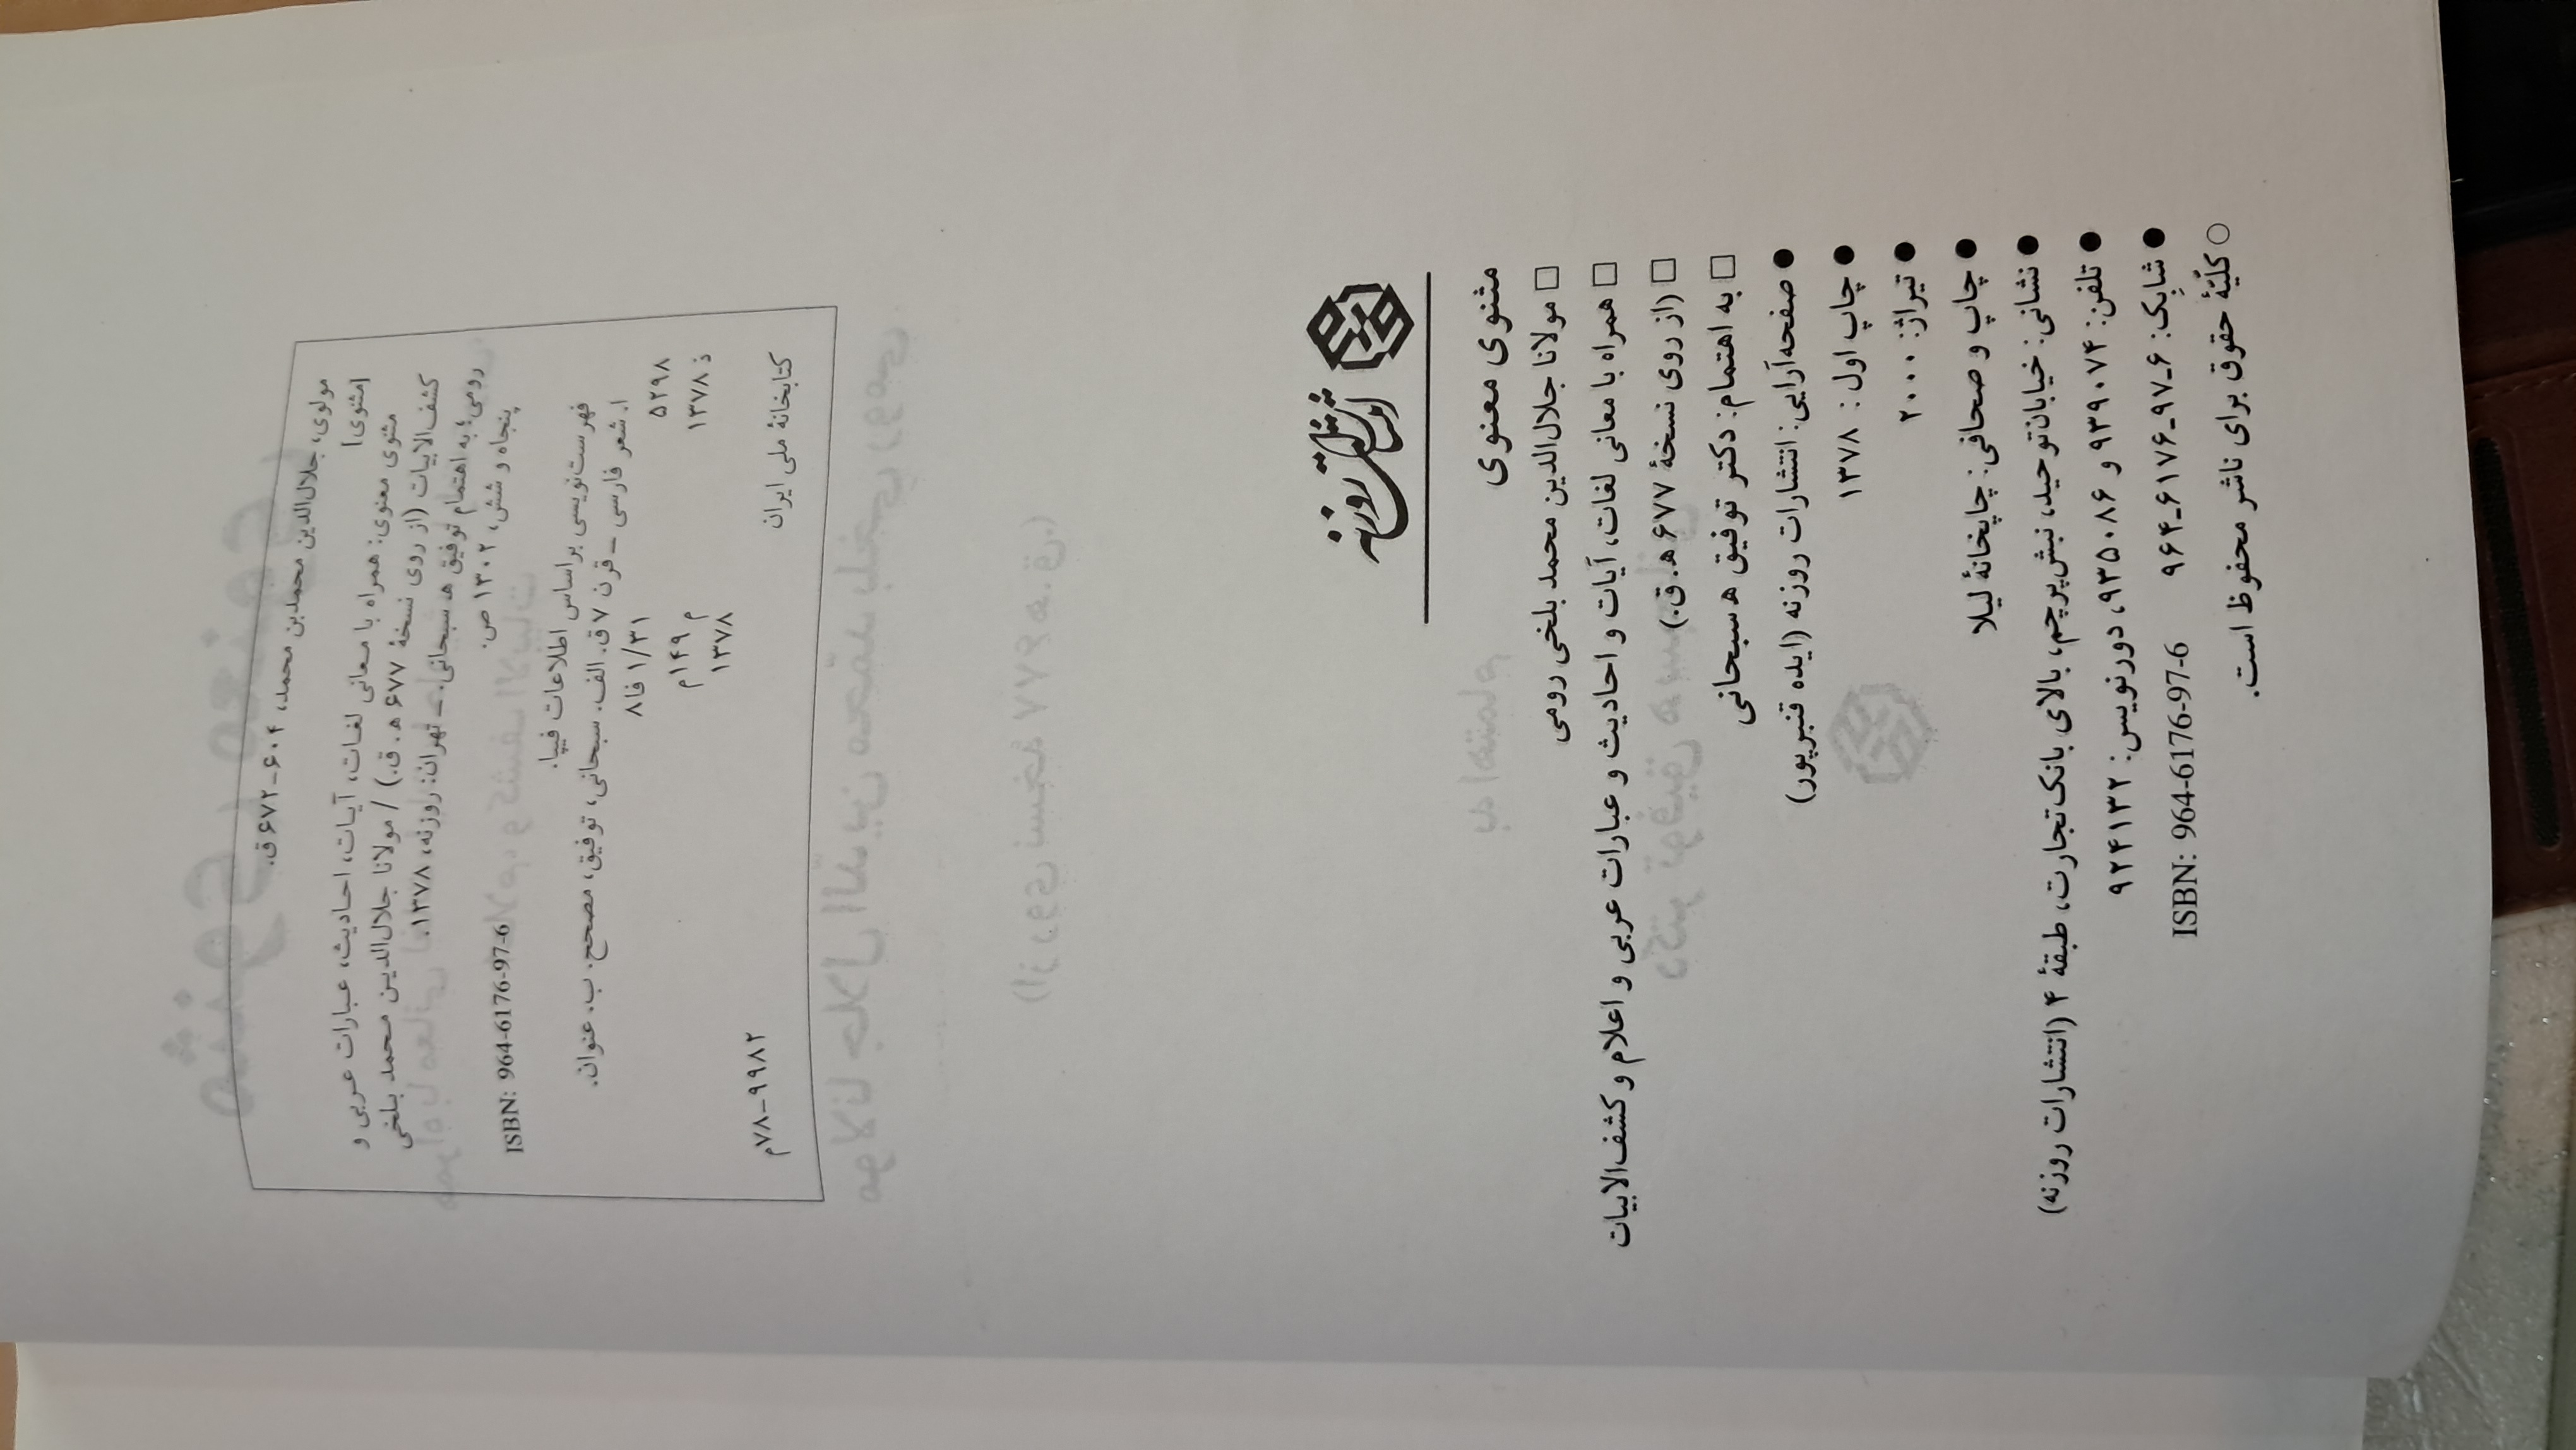 مولوی، جلال‌الدین محمدبن محمد، ۶۰۴-۶۷۲ ق.
[مثنوی]
مثنوی معنوی: همراه با معانی لغات، آیات، احادیث، عبارات عربی و
کشف‌الابیات (از روی نسخهٔ ۶۷۷ ه‍ . ق.) / مولانا جلال‌الدین محمد بلخی
رومی؛ به اهتمام توفیق ه‍ سبحانی. ـ تهران: روزنه، ۱۳۷۸.
پنجاه و شش، ۱۳۰۲ ص.
ISBN: 964-6176-97-6
فهرست‌نویسی براساس اطلاعات فیپا.
۱. شعر فارسی ـ قرن ۷ ق. الف. سبحانی، توفیق، مصحح. ب. عنوان.
۵۲۹۸ ۱/۳۱ فا۸
ذ ۱۳۷۸ م ۱۴۹م
۱۳۷۸
کتابخانهٔ ملی ایران ۹۹۸۲-۷۸م
انتشارات روزنه
مثنوی معنوی
□ مولانا جلال‌الدین محمد بلخی رومی
□ همراه با معانی لغات، آیات و احادیث و عبارات عربی و اعلام و کشف‌الابیات
□ (از روی نسخهٔ ۶۷۷ ه‍ . ق.)
□ به اهتمام: دکتر توفیق ه‍ سبحانی
● صفحه‌آرایی: انتشارات روزنه (ایده قنبرپور)
● چاپ اول: ۱۳۷۸
● تیراژ: ۲۰۰۰
● چاپ و صحافی: چاپخانهٔ لیلا
● نشانی: خیابان توحید، نبش پرچم، بالای بانک تجارت، طبقهٔ ۴ (انتشارات روزنه)
● تلفن: ۹۳۹۰۷۴ و ۹۳۵۰۸۶، دورنویس: ۹۲۴۱۳۲
● شابِک: ۶-۹۷-۶۱۷۶-۹۶۴ ISBN: 964-6176-97-6
○ کلیّهٔ حقوق برای ناشر محفوظ است.